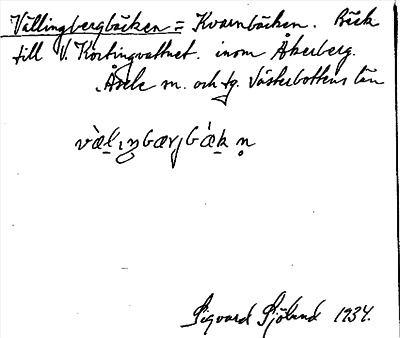 Vällingbergbäcken = Kvarnbäcken. Bäck
till V. Kortingvattnet. inom Åkerberg.
Åsele sn. och tg. Västerbottens län
Sigvard Sjölund 1934.